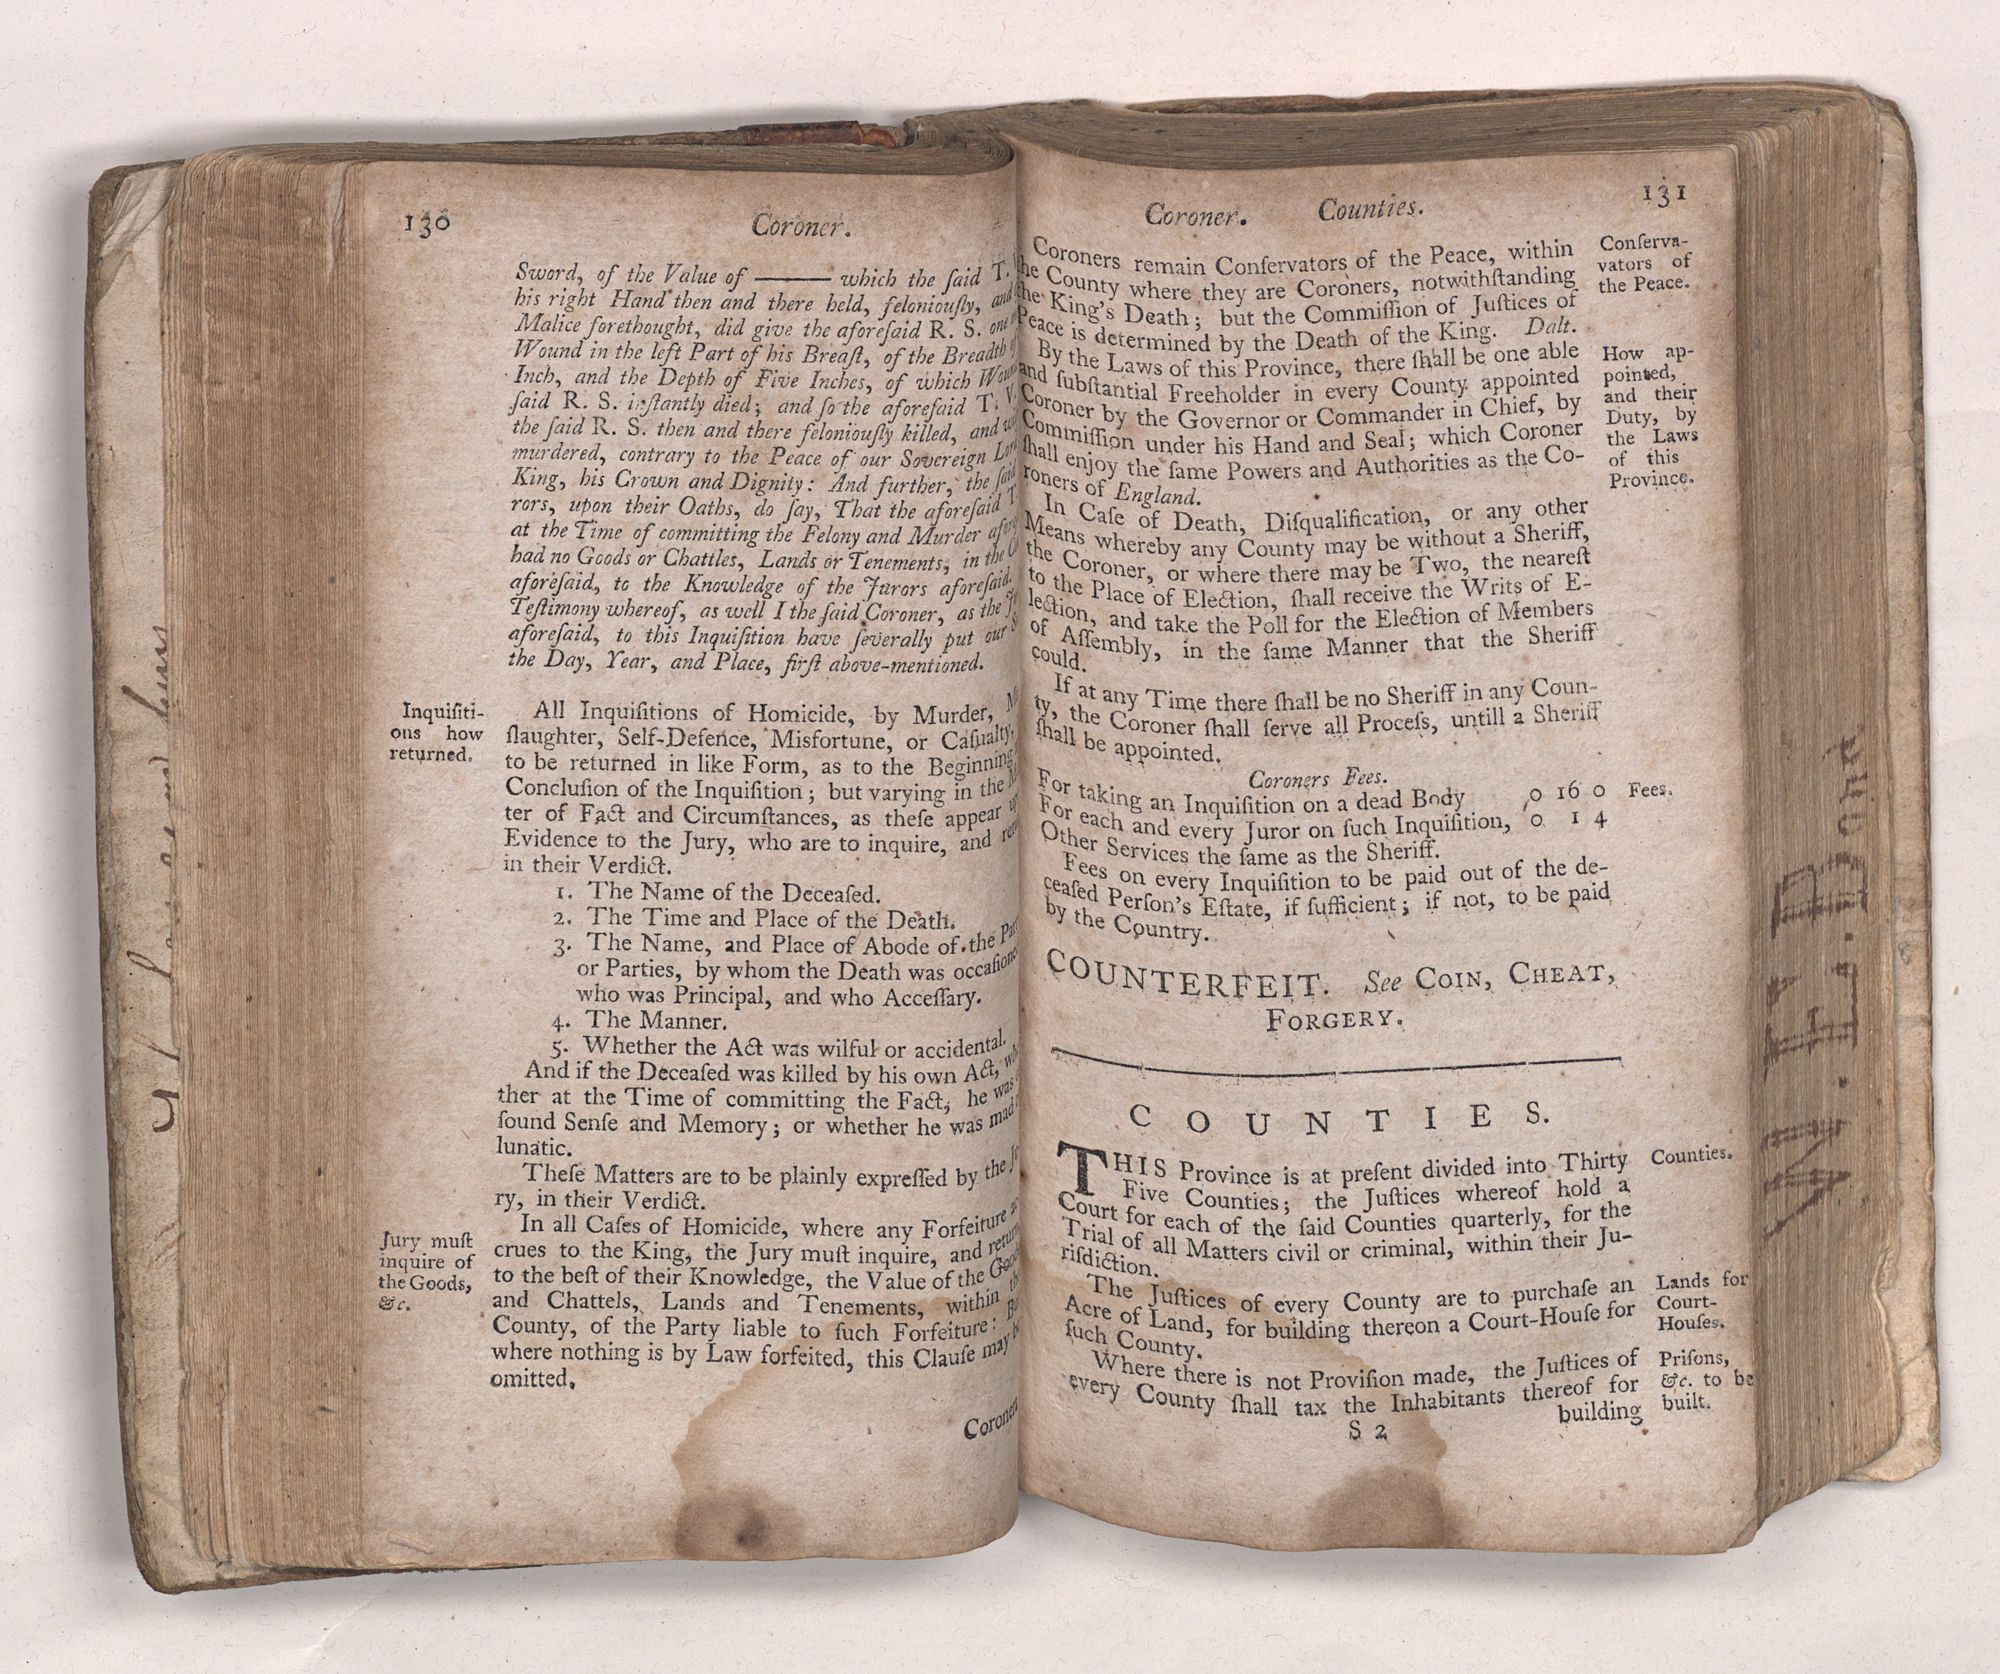 130
Coroner.
Sword, of the Value of ——— which the ſaid T.
his right Hand then and there held, feloniouſly, and
Malice forethought, did give the aforeſaid R. S. one
Wound in the left Part of his Breaſt, of the Breadth of
Inch, and the Depth of Five Inches, of which Wound
ſaid R. S. inſtantly died; and ſo the aforeſaid T. V.
the ſaid R. S. then and there feloniouſly killed, and
murdered, contrary to the Peace of our Sovereign Lord
King, his Crown and Dignity: And further, the ſaid
rors, upon their Oaths, do ſay, That the aforeſaid T.
at the Time of committing the Felony and Murder
had no Goods or Chattles, Lands or Tenements, in the
aforeſaid, to the Knowledge of the Jurors aforeſaid.
Teſtimony whereof, as well I the ſaid Coroner, as the
aforeſaid, to this Inquiſition have ſeverally put our
the Day, Year, and Place, firſt above-mentioned.
Inquiſiti-
ons how
returned.
All Inquiſitions of Homicide, by Murder,
ſlaughter, Self-Defence, Misfortune, or Caſualty,
to be returned in like Form, as to the Beginning
Concluſion of the Inquiſition; but varying in the
ter of Fact and Circumſtances, as theſe appear
Evidence to the Jury, who are to inquire, and
in their Verdict.
1. The Name of the Deceaſed.
2. The Time and Place of the Death.
3. The Name, and Place of Abode of the
or Parties, by whom the Death was occaſioned
who was Principal, and who Acceſſary.
4. The Manner.
5. Whether the Act was wilful or accidental.
And if the Deceaſed was killed by his own Act,
ther at the Time of committing the Fact, he was
ſound Senſe and Memory; or whether he was mad
lunatic.
Theſe Matters are to be plainly expreſſed by the
ry, in their Verdict.
Jury muſt
inquire of
the Goods,
&c.
In all Caſes of Homicide, where any Forfeiture
crues to the King, the Jury muſt inquire, and return
to the beſt of their Knowledge, the Value of the Goods
and Chattels, Lands and Tenements, within
County, of the Party liable to ſuch Forfeiture:
where nothing is by Law forfeited, this Clauſe may
omitted.
Coroners
Coroner. Counties.
131
Coroners remain Conſervators of the Peace, within
the County where they are Coroners, notwithſtanding
the King's Death; but the Commiſſion of Juſtices of
Peace is determined by the Death of the King. Dalt.
Conſerva-
vators of
the Peace.
By the Laws of this Province, there ſhall be one able
and ſubſtantial Freeholder in every County appointed
Coroner by the Governor or Commander in Chief, by
Commiſſion under his Hand and Seal; which Coroner
ſhall enjoy the ſame Powers and Authorities as the Co-
roners of England.
How ap-
pointed,
and their
Duty, by
the Laws
of this
Province.
In Caſe of Death, Diſqualification, or any other
Means whereby any County may be without a Sheriff,
the Coroner, or where there may be Two, the neareſt
to the Place of Election, ſhall receive the Writs of E-
lection, and take the Poll for the Election of Members
of Aſſembly, in the ſame Manner that the Sheriff
could.
If at any Time there ſhall be no Sheriff in any Coun-
ty, the Coroner ſhall ſerve all Proceſs, untill a Sheriff
ſhall be appointed.
Coroners Fees.
For taking an Inquiſition on a dead Body 0 16 0
Fees.
For each and every Juror on ſuch Inquiſition, 0 1 4
Other Services the ſame as the Sheriff.
Fees on every Inquiſition to be paid out of the de-
ceaſed Perſon's Eſtate, if ſufficient; if not, to be paid
by the Country.
COUNTERFEIT. See COIN, CHEAT,
FORGERY.
COUNTIES.
THIS Province is at preſent divided into Thirty
Five Counties; the Juſtices whereof hold a
Court for each of the ſaid Counties quarterly, for the
Trial of all Matters civil or criminal, within their Ju-
riſdiction.
Counties.
The Juſtices of every County are to purchaſe an
Acre of Land, for building thereon a Court-Houſe for
ſuch County.
Lands for
Court-
Houſes.
Where there is not Proviſion made, the Juſtices of
every County ſhall tax the Inhabitants thereof for
Priſons,
&c. to be
built.
S 2
building